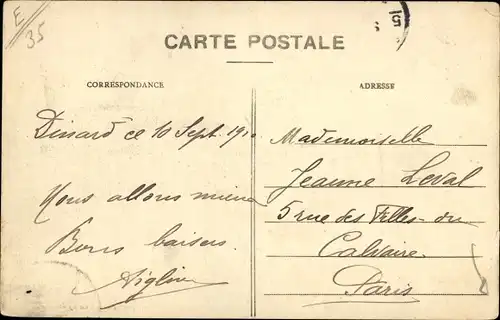 E
35
5
CARTE POSTALE
CORRESPONDANCE
ADRESSE
Dinard ce 10 Sept. 191
Nous allons mieux
Bons baisers.
Mademoiselle
Jeanne Leval
5 rue des Filles-du
Calvaire.
Paris